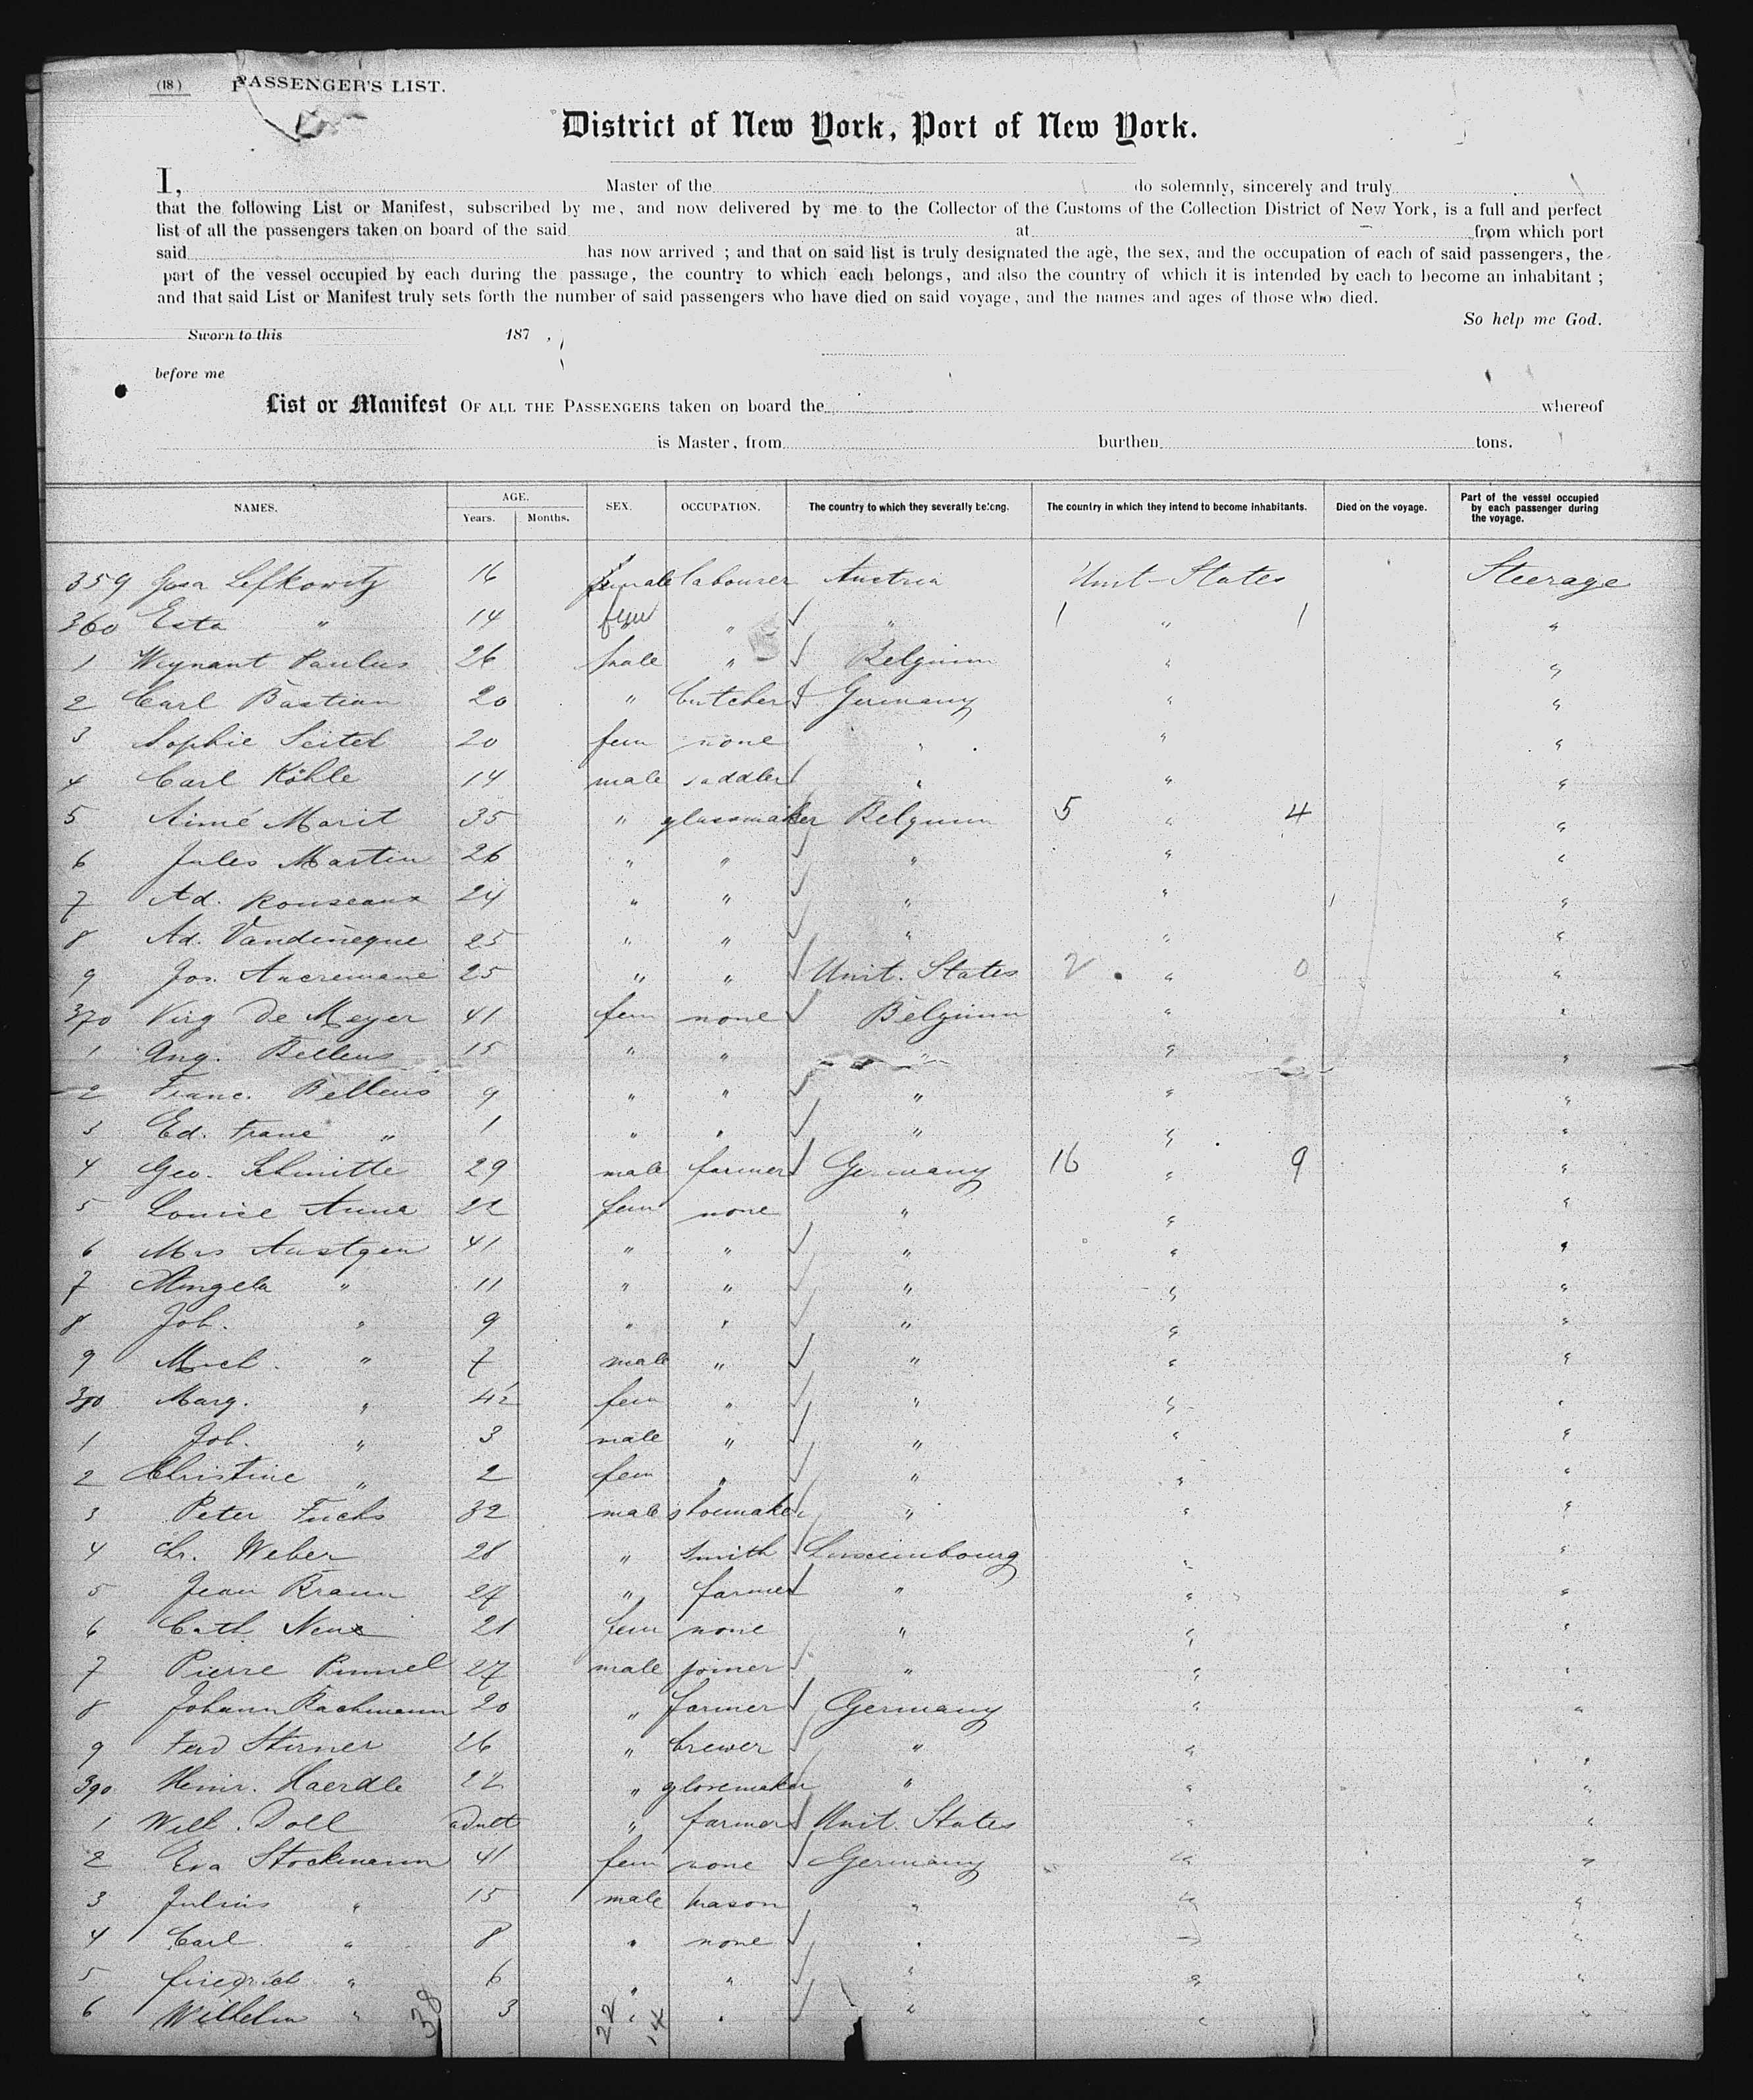 (18) PASSENGER'S LIST.
District of New York, Port of New York.
I, Master of the do solemnly, sincerely and truly
that the following List or Manifest, subscribed by me, and now delivered by me to the Collector of the Customs of the Collection District of New York, is a full and perfect
list of all the passengers taken on board of the said at from which port
said has now arrived ; and that on said list is truly designated the age, the sex, and the occupation of each of said passengers, the
part of the vessel occupied by each during the passage, the country to which each belongs, and also the country of which it is intended by each to become an inhabitant ;
and that said List or Manifest truly sets forth the number of said passengers who have died on said voyage, and the names and ages of those who died.
So help me God.
Sworn to this 187 ,
before me
List or Manifest OF ALL THE PASSENGERS taken on board the whereof
is Master, from burthen tons.
NAMES. AGE. Years. Months. SEX. OCCUPATION. The country to which they severally belong. The country in which they intend to become inhabitants. Died on the voyage. Part of the vessel occupied by each passenger during the voyage.
359 Lefkowitz 16 female labourer Austria Unit-States Steerage
360 Esta " 14 fem " " 1 " 1 "
1 Weynant Paulus 26 male " Belgium " "
2 Carl Bastian 20 " butcher Germany " "
3 Sophie Seitel 20 fem none " " "
4 Carl Köhle 14 male saddler " " "
5 Aimé Marit 35 " glassmaker Belgium 5 " 4 "
6 Jules Martin 26 " " " " "
7 Ad. Rouseaux 24 " " " " "
8 Ad. Vandineque 25 " " " " "
9 Jos. Ancremane 25 " " Unit. States 2 " 0 "
370 Virg De Meyer 41 fem none Belgium " "
1 Ang. Bellens 15 " " " " "
2 Franc. Bellens 9 " " " " "
3 Ed. Franc " 1 " " " " "
4 Geo. Schmitte 29 male farmer Germany 16 " 9 "
5 Louise Anna 22 fem none " " "
6 Mrs Austgen 41 " " " " "
7 Angela " 11 " " " " "
8 Joh. " 9 " " " " "
9 Mich. " 7 male " " " "
380 Marg. " 4½ fem " " " "
1 Joh. " 3 male " " " "
2 Christine " 2 fem " " " "
3 Peter Fuchs 32 male shoemaker " " "
4 Chr. Weber 28 " smith Luxembourg " "
5 Jean Braun 24 " farmer " " "
6 Cath Neux 21 fem none " " "
7 Pierre Pimmel 27 male joiner " " "
8 Johann Rachmann 20 " farmer Germany " "
9 Ferd Sterner 26 " brewer " " "
390 Heinr. Haerdle 22 " glovemaker " " "
1 Wilh. Doll adult " farmer Unit. States " "
2 Eva Stockmann 41 fem none Germany " "
3 Julius " 15 male mason " " "
4 Carl " 8 " none " " "
5 friedrich " 6 " " " " "
6 Wilhelm " 3 " " " " "
38 22 14